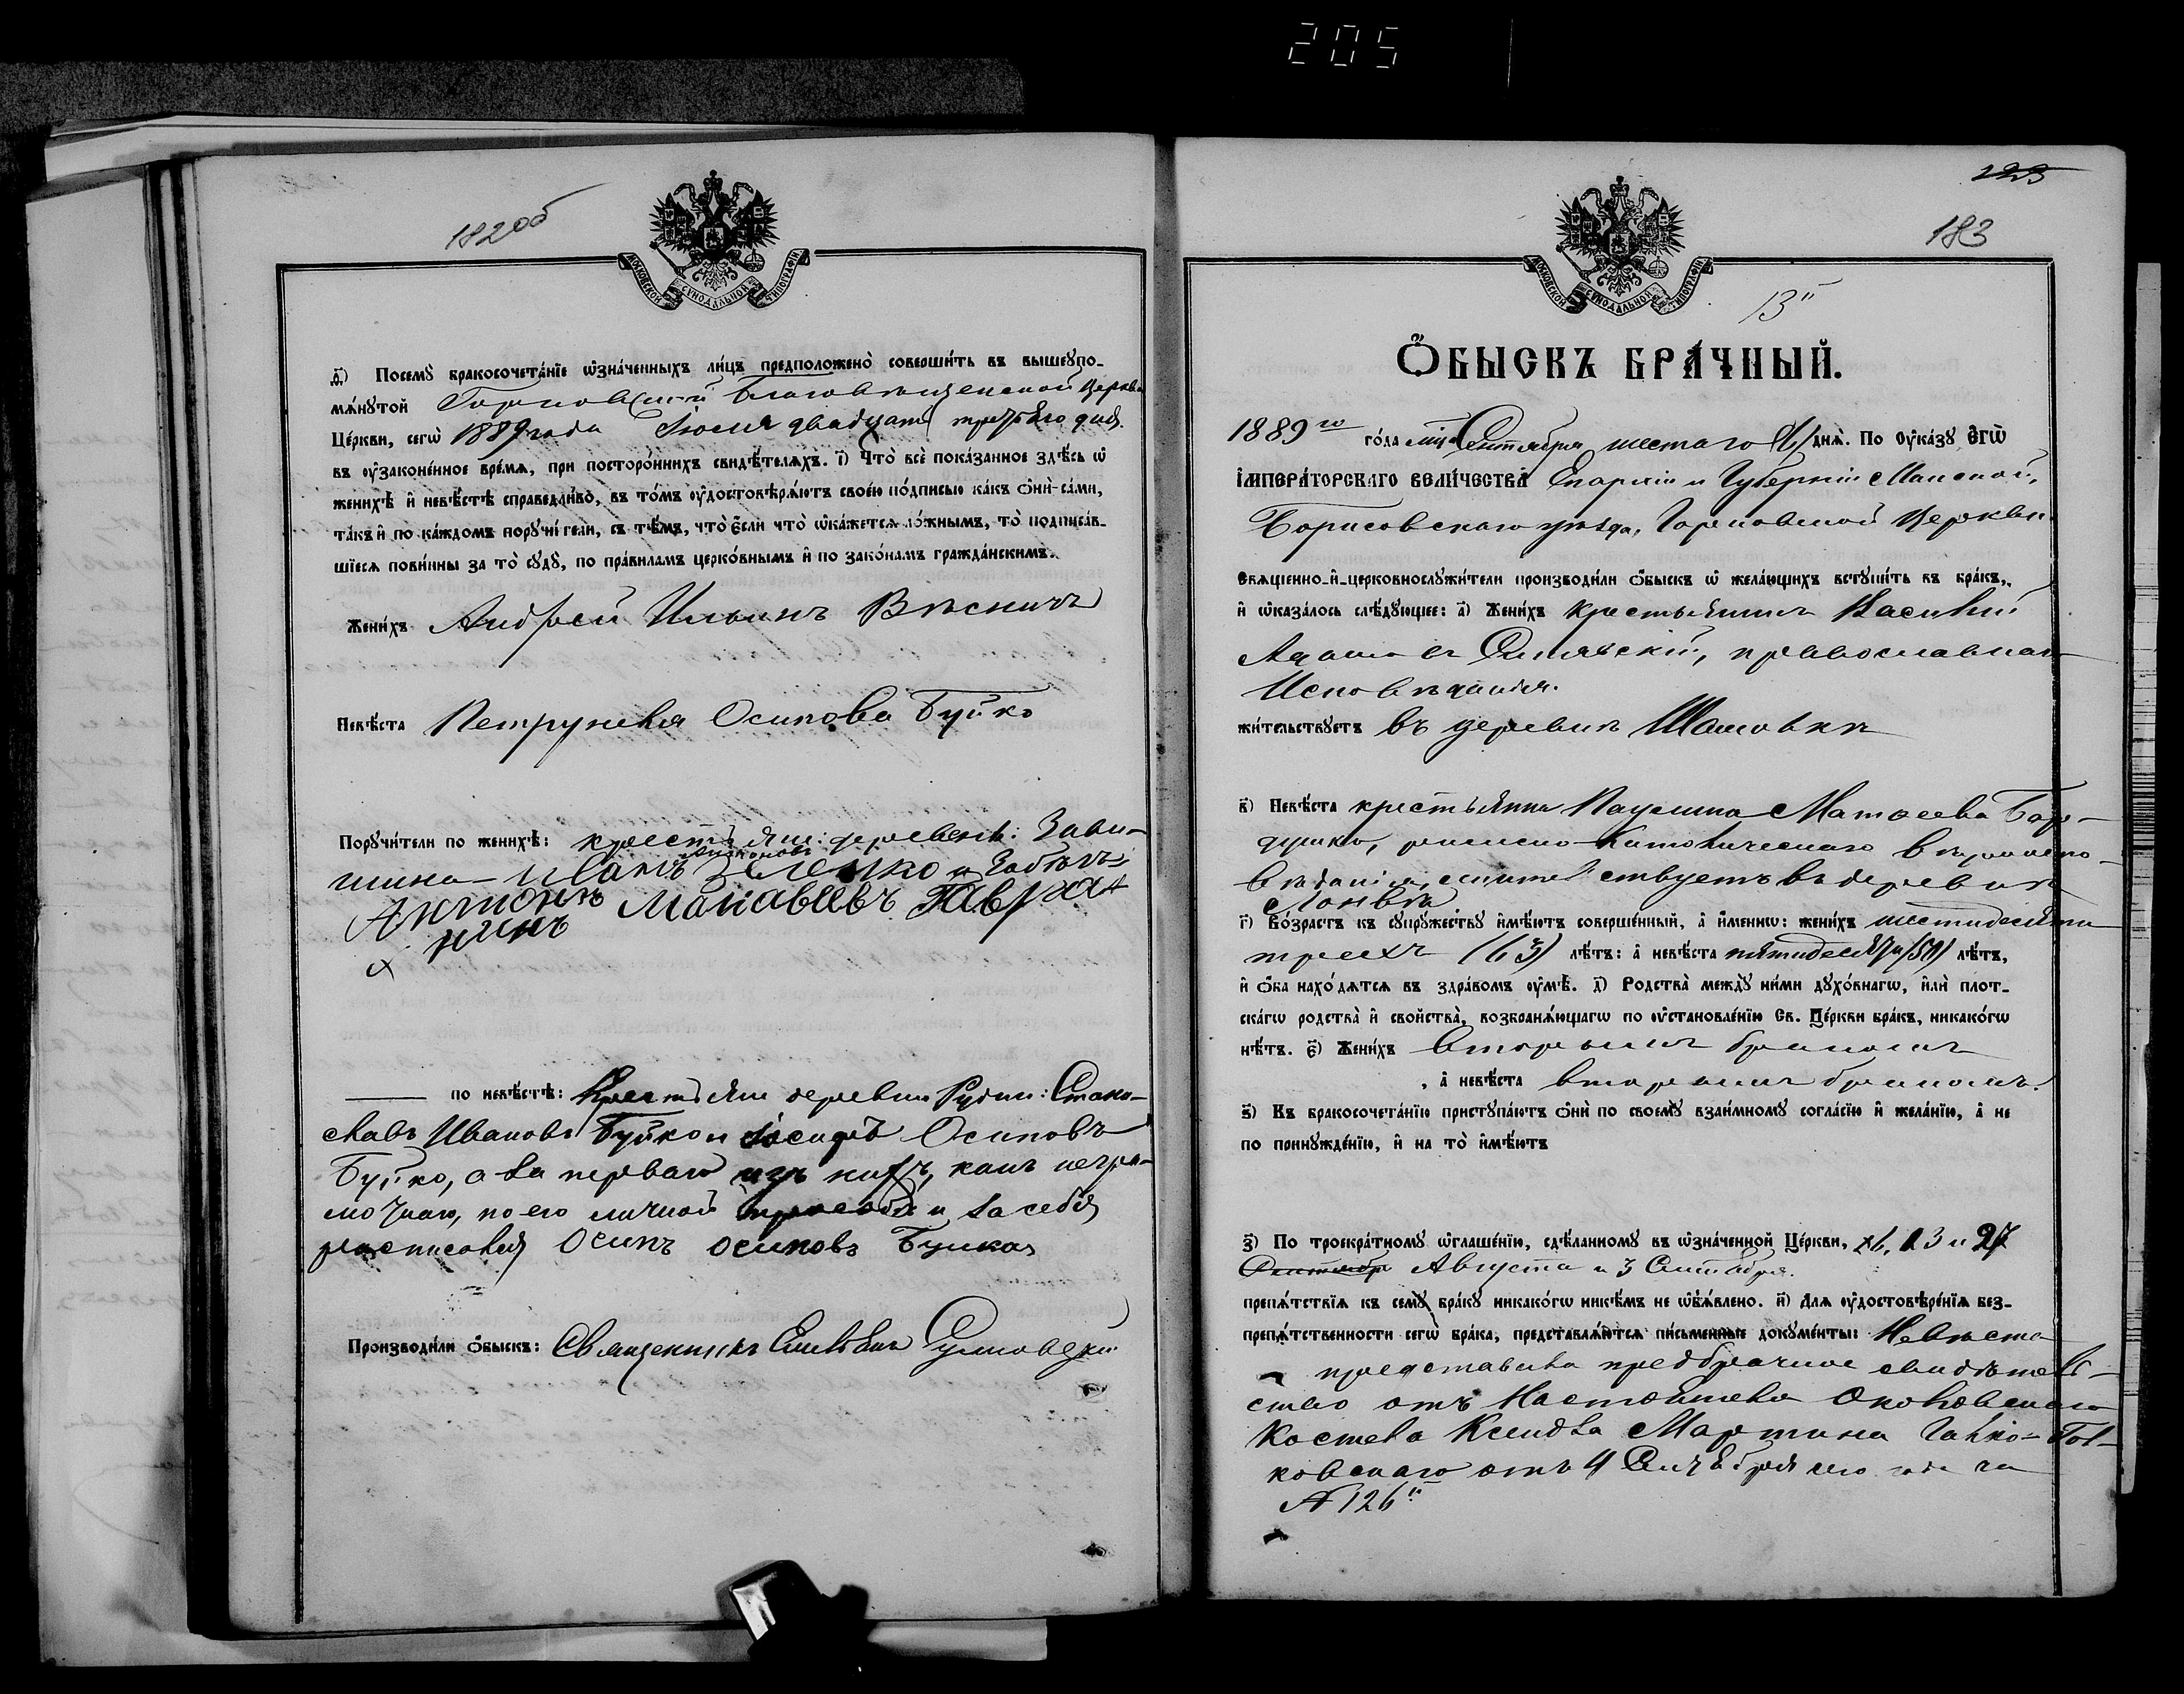 205
182об
МОСКОВСКОЙ СѴНОДАЛЬНОЙ ТИПОГРАФІИ
ѳ҃) Посемꙋ бракосочета́нїе ѡ҆зна́ченныхъ ли́цъ предположено̀ соверши́ть въ вышеꙋпо-
мѧ́нꙋтой Горковской Благовѣщенской Церкви
Це́ркви, сегѡ̀ 1889 года Іюля двадцать третьяго дня.
въ ᲂу҆законе́нное вре́мѧ, при посторо́ннихъ свидѣ́телѧхъ. і҃) Что̀ всѐ пока́занное здѣ́сь ѡ҆
женихѣ̀ и҆ невѣ́стѣ справедли́во, въ то́мъ ᲂу҆достовѣрѧ́ютъ свое́ю по́дписью ка́къ ѻ҆нѝ са́ми,
та́къ и҆ по ка́ждомъ порꙋчи́тели, съ тѣ́мъ, что̀ є҆́сли что̀ ѡ҆ка́жетсѧ ло́жнымъ, то̀ подписа́в-
шїесѧ пови́нны за то̀ сꙋдꙋ̀, по пра́виламъ церко́внымъ и҆ по зако́намъ гражда́нскимъ.
Жени́хъ Андрей Ильинъ Вѣсничъ
Невѣ́ста Петрунеля Осипова Буйко
Порꙋчи́тели по женихѣ̀: крестьяне: деревень: Зави-
шина — Иванъ
Антонъ
по невѣ́стѣ: Крестьяне деревни Рудни: Стани-
славъ Ивановъ Буйко и Іосифъ Осиповъ
Буйко, а за перваго изъ нихъ, какъ негра-
мотнаго, по его личной просьбѣ и за себя
росписался Осипъ Осиповъ Буйко
Производи́ли ѻ҆́быскъ: Священникъ
223
183
МОСКОВСКОЙ СѴНОДАЛЬНОЙ ТИПОГРАФІИ
13
Ѻ҆́БЫСКЪ БРА́ЧНЫЙ.
1889 го го́да мца Сентября шестаго (6) днѧ̀. По ᲂу҆ка́зꙋ Є҆гѡ̀
І҆мпера́торскагѡ вели́чества Епархіи и Губерніи Минской,
Борисовскаго уѣзда, Горковской Церкви
Свѧще́нно-и҆-церковнослꙋжи́тели производи́ли ѻ҆́быскъ ѡ҆ жела́ющихъ встꙋпи́ть въ бра́къ,
и҆ ѡ҆каза́лось слѣ́дꙋющее: а҃) Жени́хъ крестьянинъ Василій
православнаго
Исповѣданія.
жи́тельствꙋетъ въ деревнѣ
в҃) Невѣ́ста крестьянка Паулина Матѳеева
римско-католическаго вѣроиспо-
вѣданія, жительствуетъ въ деревнѣ
г҃) Во́зрастъ къ сꙋпрꙋ́жествꙋ и҆мѣ́ютъ соверше́нный, а҆ и҆́меннѡ: жени́хъ шестидесяти
трехъ (63) лѣ́тъ: а҆ невѣ́ста пятидесяти (50) лѣ́тъ,
и҆ ѻ҆́ба нахо́дѧтсѧ въ здра́вомъ ᲂу҆мѣ̀. д҃) Родства̀ междꙋ̀ ни́ми дꙋхо́внагѡ, и҆лѝ плот-
ска́гѡ родства̀ и҆ свойства̀, возбранѧ́ющагѡ по ᲂу҆становле́нїю Св. Це́ркви бра́къ, никако́гѡ
нѣ́тъ. є҃) Жени́хъ вторымъ бракомъ
, а҆ невѣ́ста вторымъ бракомъ.
ѕ҃) Къ бракосочета́нїю пристꙋпа́ютъ ѻ҆нѝ по своемꙋ̀ взаи́мномꙋ согла́сїю и҆ жела́нїю, а҆ не
по принꙋжде́нїю, и҆ на то̀ и҆мѣ́ютъ
з҃) По троекра́тномꙋ ѡ҆глаше́нїю, сдѣ́ланномꙋ въ ѡ҆зна́ченной Це́ркви,
Августа и 3 Сентября.
препѧ́тствїѧ къ семꙋ̀ бра́кꙋ никако́гѡ никѣ́мъ не ѡ҆б̾ѧ́влено. и҃) Длѧ ᲂу҆достовѣре́нїѧ без-
препѧ́тственности сегѡ̀ бра́ка, представлѧ́ютсѧ пи́сьменные докꙋме́нты: Невѣста
представила предбрачное свидѣтель-
ство отъ Настоятеля Околовскаго
Костела Ксендза Мартина
отъ 4 Сентября сего года за
№ 126